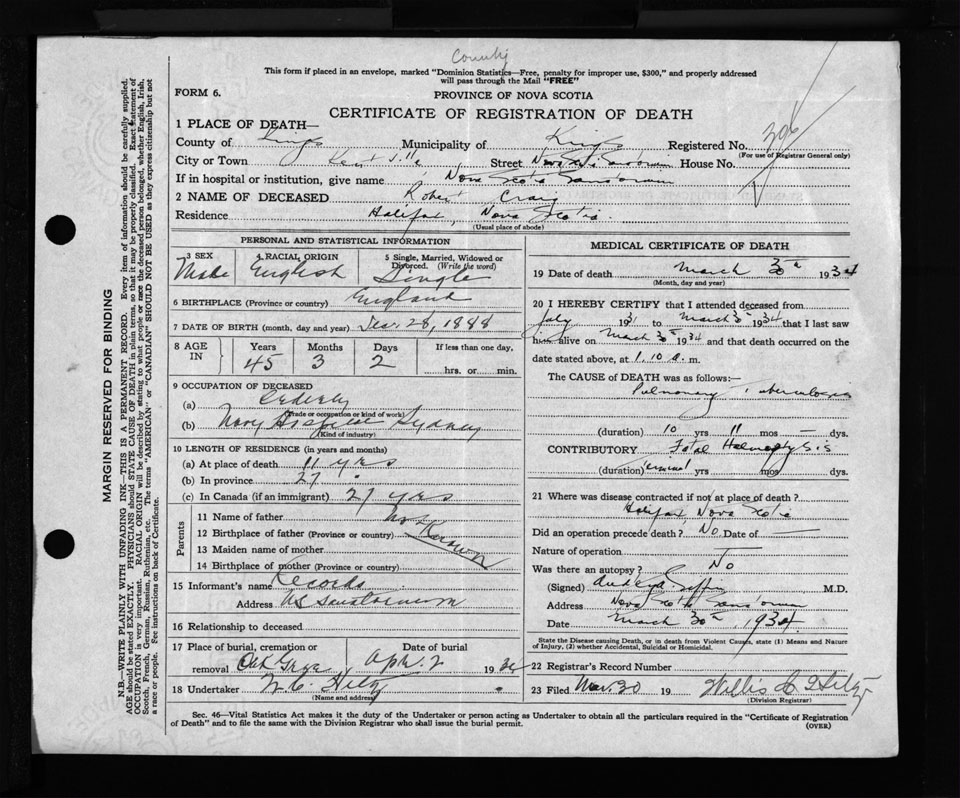 County
This form if placed in an envelope, marked "Dominion Statistics—Free, penalty for improper use, $300," and properly addressed
will pass through the Mail "FREE"
FORM 6.
PROVINCE OF NOVA SCOTIA
CERTIFICATE OF REGISTRATION OF DEATH
1 PLACE OF DEATH—
County of Kings Municipality of Kings Registered No. 396
(For use of Registrar General only)
City or Town Kentville Street Nova Scotia Sanatorium House No.
If in hospital or institution, give name Nova Scotia Sanatorium
2 NAME OF DECEASED Robert Craig
Residence Halifax, Nova Scotia.
(Usual place of abode)
PERSONAL AND STATISTICAL INFORMATION
3 SEX 4 RACIAL ORIGIN 5 Single, Married, Widowed or
Divorced. (Write the word)
Male English Single
6 BIRTHPLACE (Province or country) England
7 DATE OF BIRTH (month, day and year) Dec. 28, 1888
8 AGE IN Years Months Days If less than one day,
45 3 2 hrs. or min.
9 OCCUPATION OF DECEASED
(a) Orderly
(Trade or occupation or kind of work)
(b) Navy Hospital Sydney
(Kind of industry)
10 LENGTH OF RESIDENCE (in years and months)
(a) At place of death 11 yrs
(b) In province 27
(c) In Canada (if an immigrant) 27 yrs
Parents
11 Name of father Not Known
12 Birthplace of father (Province or country)
13 Maiden name of mother
14 Birthplace of mother (Province or country)
15 Informant's name Records
Address NS Sanatorium
16 Relationship to deceased
17 Place of burial, cremation or Date of burial
removal Oak Grove Apr. 2 1934
18 Undertaker W. C. Hiltz
(Name and address)
MEDICAL CERTIFICATE OF DEATH
19 Date of death March 30th 1934
(Month, day and year)
20 I HEREBY CERTIFY that I attended deceased from
July 1931 to March 30th 1934 that I last saw
him alive on March 30th 1934 and that death occurred on the
date stated above, at 1.10 a. m.
The CAUSE of DEATH was as follows:—
Pulmonary Tuberculosis
(duration) 10 yrs 11 mos — dys.
CONTRIBUTORY Fatal Haemoptysis
(duration) yrs mos dys.
21 Where was disease contracted if not at place of death?
Halifax, Nova Scotia
Did an operation precede death? No Date of —
Nature of operation —
Was there an autopsy? No
(Signed) M.D.
Address Nova Scotia Sanatorium
Date March 30th 1934
State the Disease causing Death, or in death from Violent Causes, state (1) Means and Nature
of Injury, (2) whether Accidental, Suicidal or Homicidal.
22 Registrar's Record Number
23 Filed Mar. 30 19 Willis C Hiltz
(Division Registrar)
Sec. 46—Vital Statistics Act makes it the duty of the Undertaker or person acting as Undertaker to obtain all the particulars required in the "Certificate of Registration
of Death" and to file the same with the Division Registrar who shall issue the burial permit.
(OVER)
MARGIN RESERVED FOR BINDING
N.B.—WRITE PLAINLY WITH UNFADING INK—THIS IS A PERMANENT RECORD. Every item of information should be carefully supplied.
AGE should be stated EXACTLY. PHYSICIANS should STATE CAUSE OF DEATH in plain terms, so that it may be properly classified. Exact statement of
OCCUPATION is very important. RACIAL ORIGIN will be described by stating to what people or race the deceased person belonged, whether English, Irish,
Scotch, French, German, Russian, Ruthenian, etc. The terms "AMERICAN" or "CANADIAN" SHOULD NOT BE USED as they express citizenship but not
a race or people. See instructions on back of Certificate.